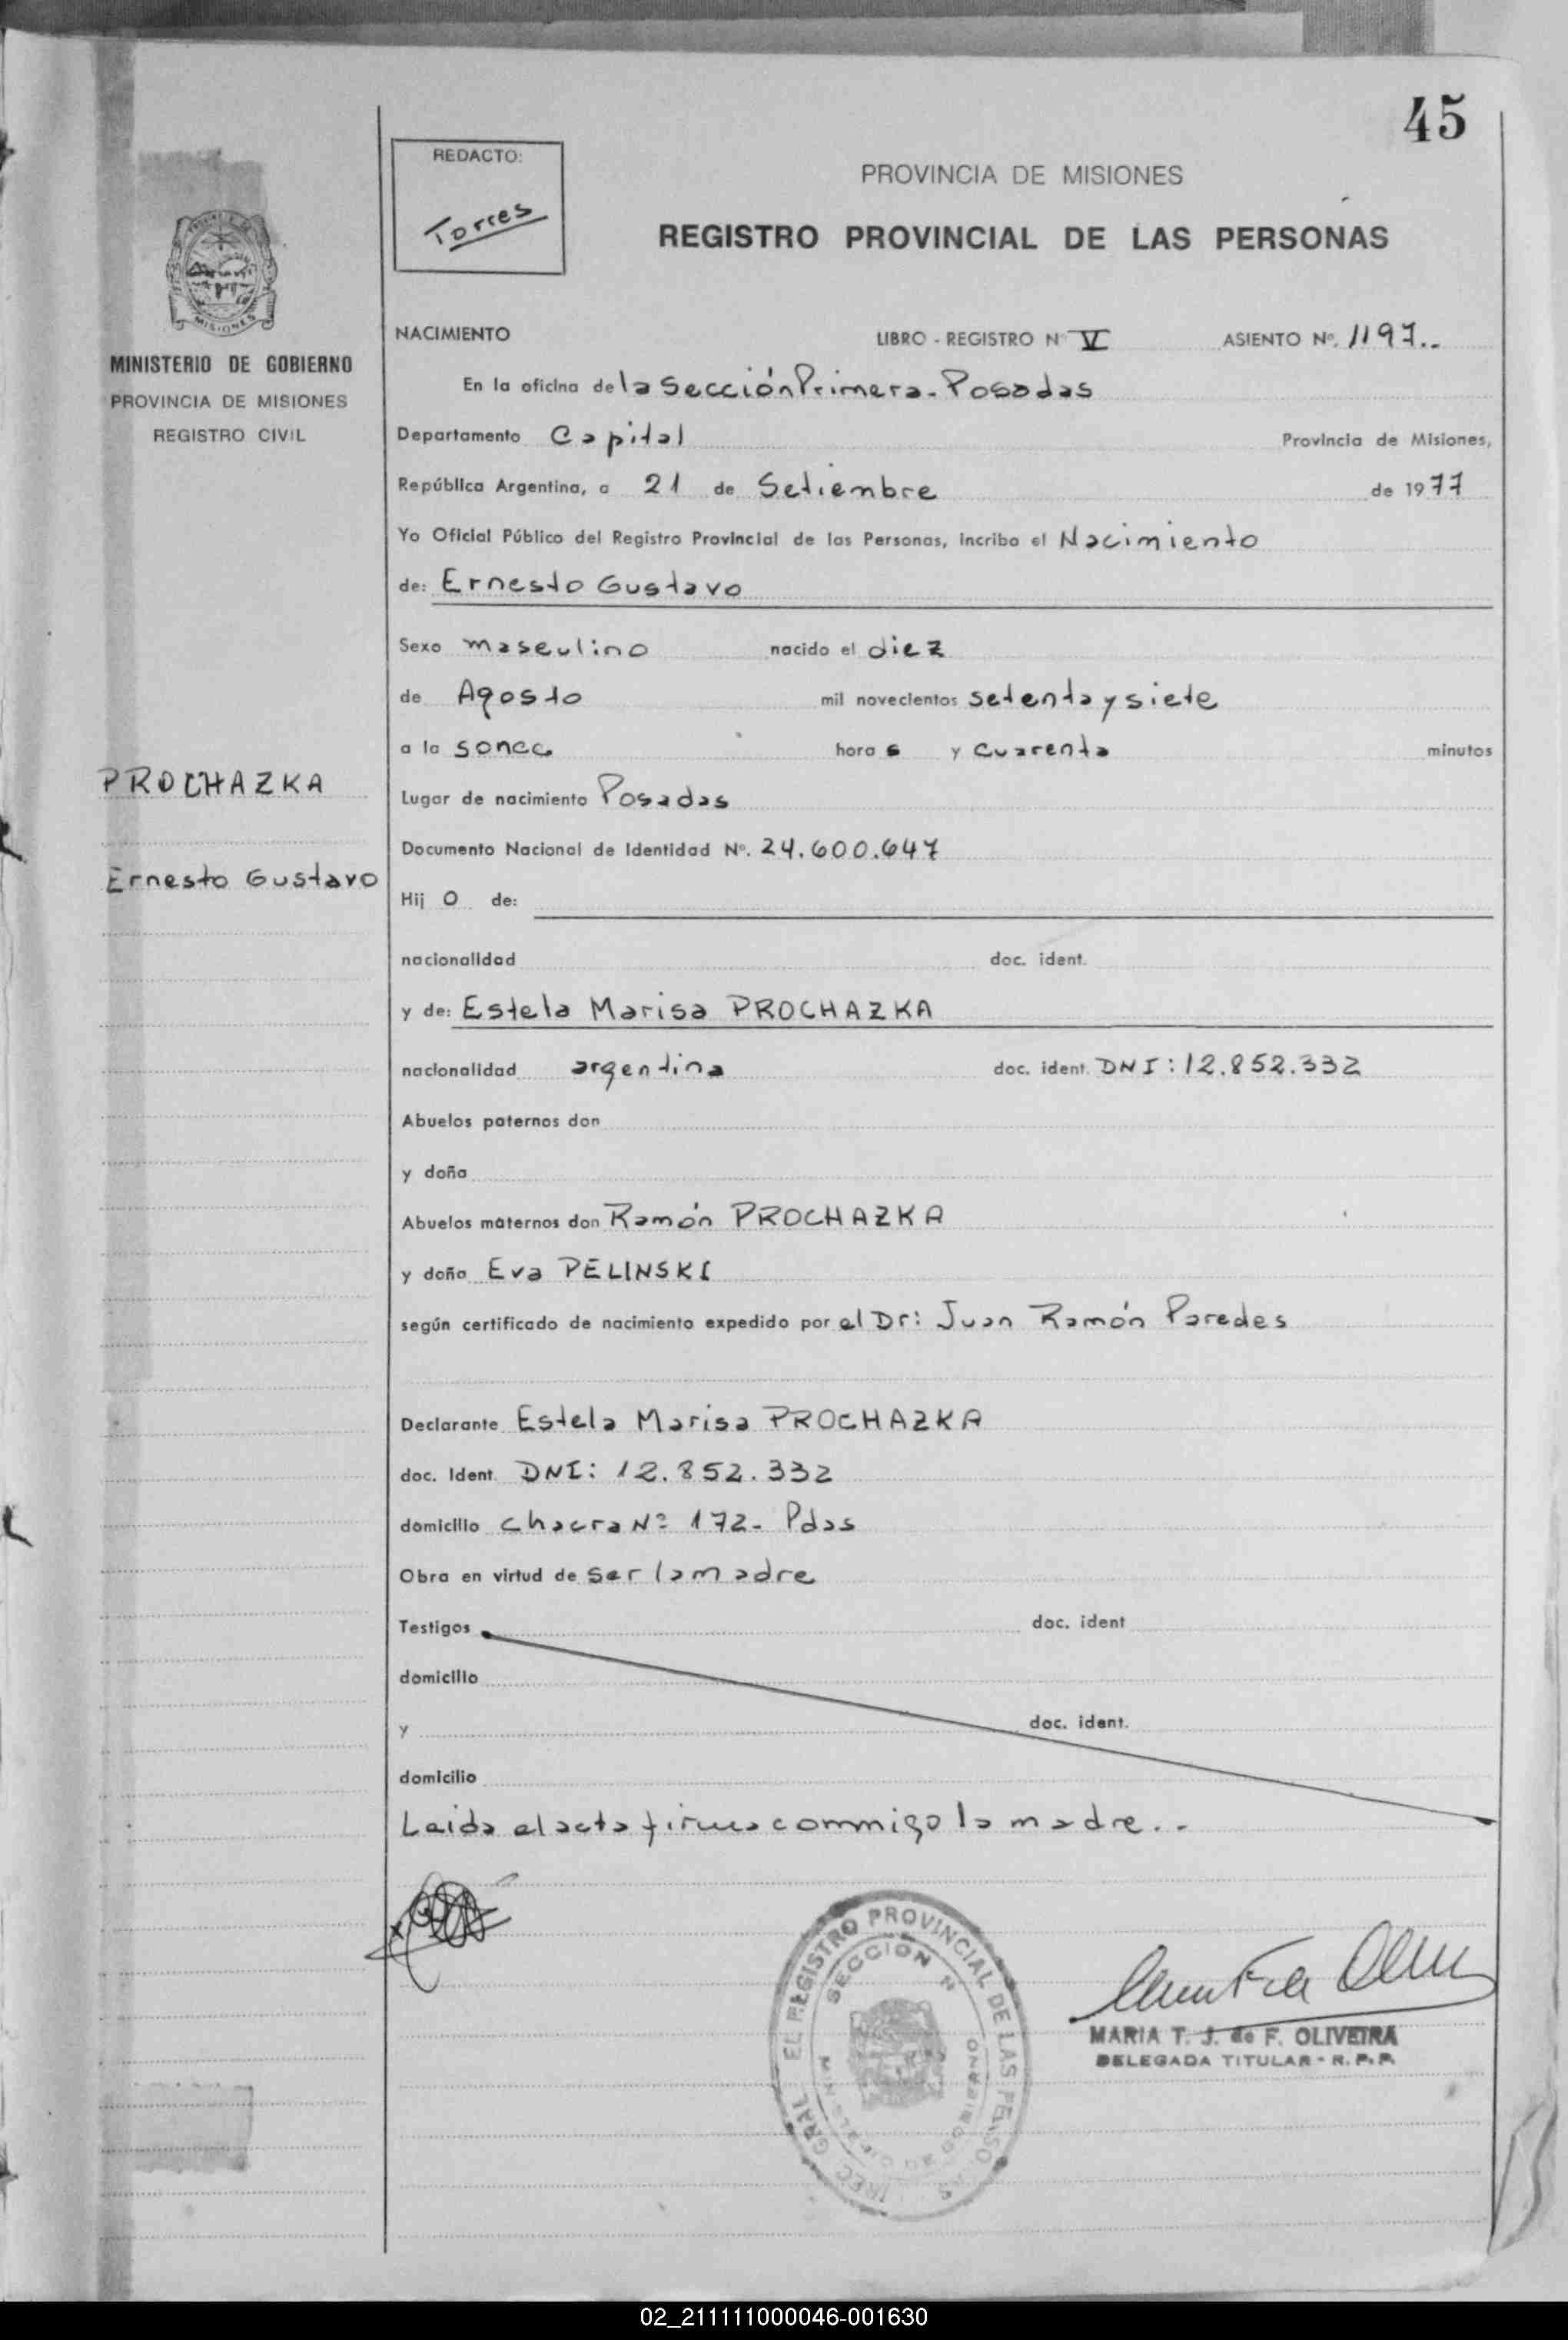 45
REDACTO:
Torres
PROVINCIA DE MISIONES
REGISTRO PROVINCIAL DE LAS PERSONAS
MISIONES
MINISTERIO DE GOBIERNO
PROVINCIA DE MISIONES
REGISTRO CIVIL
PROCHAZKA
Ernesto Gustavo
NACIMIENTO LIBRO - REGISTRO Nº V ASIENTO Nº. 1197..
En la oficina de la Sección Primera - Posadas
Departamento Capital Provincia de Misiones,
República Argentina, a 21 de Setiembre de 1977
Yo Oficial Público del Registro Provincial de las Personas, incribo el Nacimiento
de: Ernesto Gustavo
Sexo masculino nacido el diez
de Agosto mil novecientos setenta y siete
a la s once hora s y cuarenta minutos
Lugar de nacimiento Posadas
Documento Nacional de Identidad Nº. 24.600.647
Hij o de:
nacionalidad doc. ident.
y de: Estela Marisa PROCHAZKA
nacionalidad argentina doc. ident. DNI: 12.852.332
Abuelos paternos don
y doña
Abuelos maternos don Ramón PROCHAZKA
y doña Eva PELINSKI
según certificado de nacimiento expedido por el Dr: Juan Ramón Paredes
Declarante Estela Marisa PROCHAZKA
doc. Ident. DNI: 12.852.332
domicilio Chacra Nº 172- Pdas
Obra en virtud de ser la madre
Testigos doc. ident
domicilio
y doc. ident.
domicilio
Leida el acta firma conmigo la madre..
REGISTRO PROVINCIAL DE LAS
SECCION N
MARIA T. J. de F. OLIVEIRA
DELEGADA TITULAR - R. P. P.
02_211111000046-001630